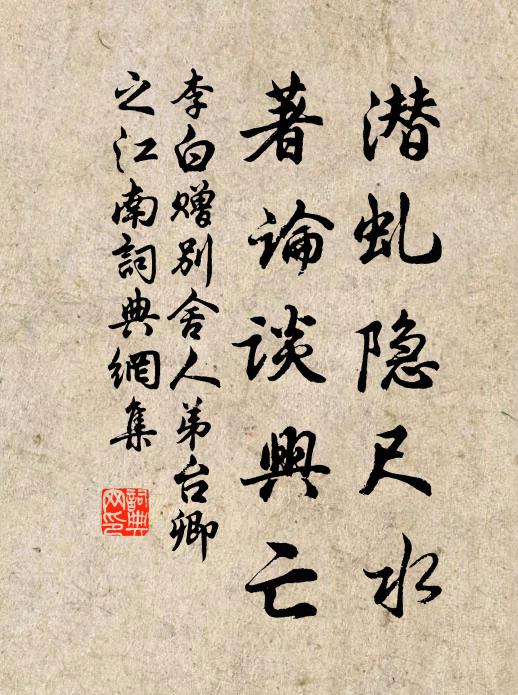 潜虬隐尺水
著論談興亡
李白赠别舍人弟台卿
之江南詞典網集
詞典
网印